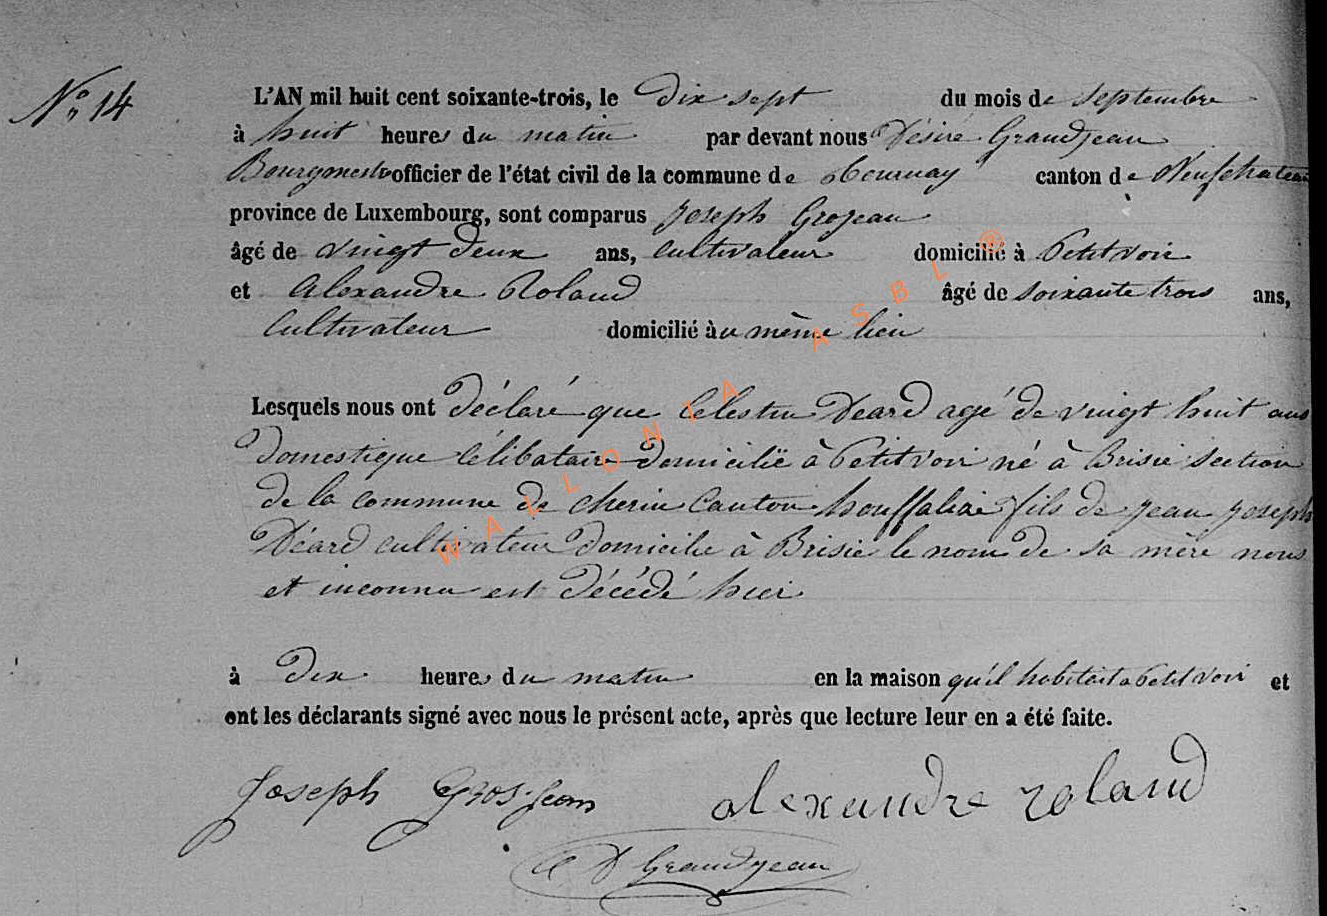 N° 14
L'AN mil huit cent soixante-trois, le Dix sept du mois de Septembre
à huit heures du matin par devant nous Désiré Grandjean
Bourgmestre officier de l'état civil de la commune de Tournay canton de Neufchateau
province de Luxembourg, sont comparus Joseph Grosjean
âgé de vingt deux ans, cultivateur domicilié à Petitvoir
et Alexandre Roland âgé de soixante trois ans,
Cultivateur domicilié au même lieu
Lesquels nous ont Déclaré que Celestin Deard agé de vingt huit ans
Domestique Célibataire Domicilié à Petitvoir né à Brisie section
de la commune de Cherin Canton houffalize fils de Jean Joseph
Déard cultivateur Domicilie à Brisie le nom De sa mère nous
et inconnu est Décédé hier
à Dix heures du matin en la maison qu'il habitait a Petitvoir et
ont les déclarants signé avec nous le présent acte, après que lecture leur en a été faite.
Joseph Grosjean alexandre roland
D Grandjean
WALLONIA ASBL ®